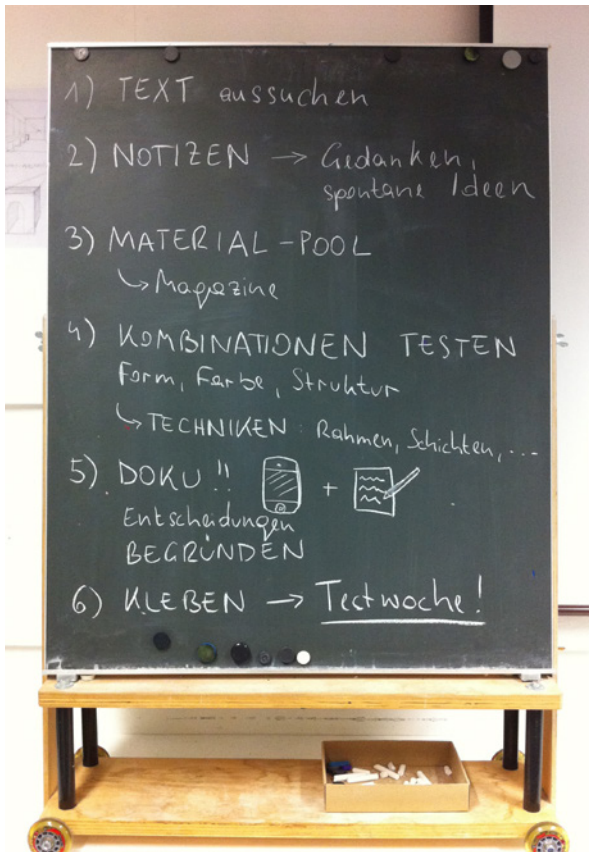 1) TEXT aussuchen
2) NOTIZEN → Gedanken,
spontane Ideen
3) MATERIAL-POOL
↳ Magazine
4) KOMBINATIONEN TESTEN
Form, Farbe, Struktur
↳ TECHNIKEN: Rahmen, Schichten, ...
5) DOKU!! +
Entscheidungen
BEGRÜNDEN
6) KLEBEN → Testwoche!